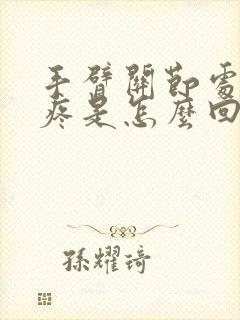 手臂關節處
疼是怎麼回
孫耀琦